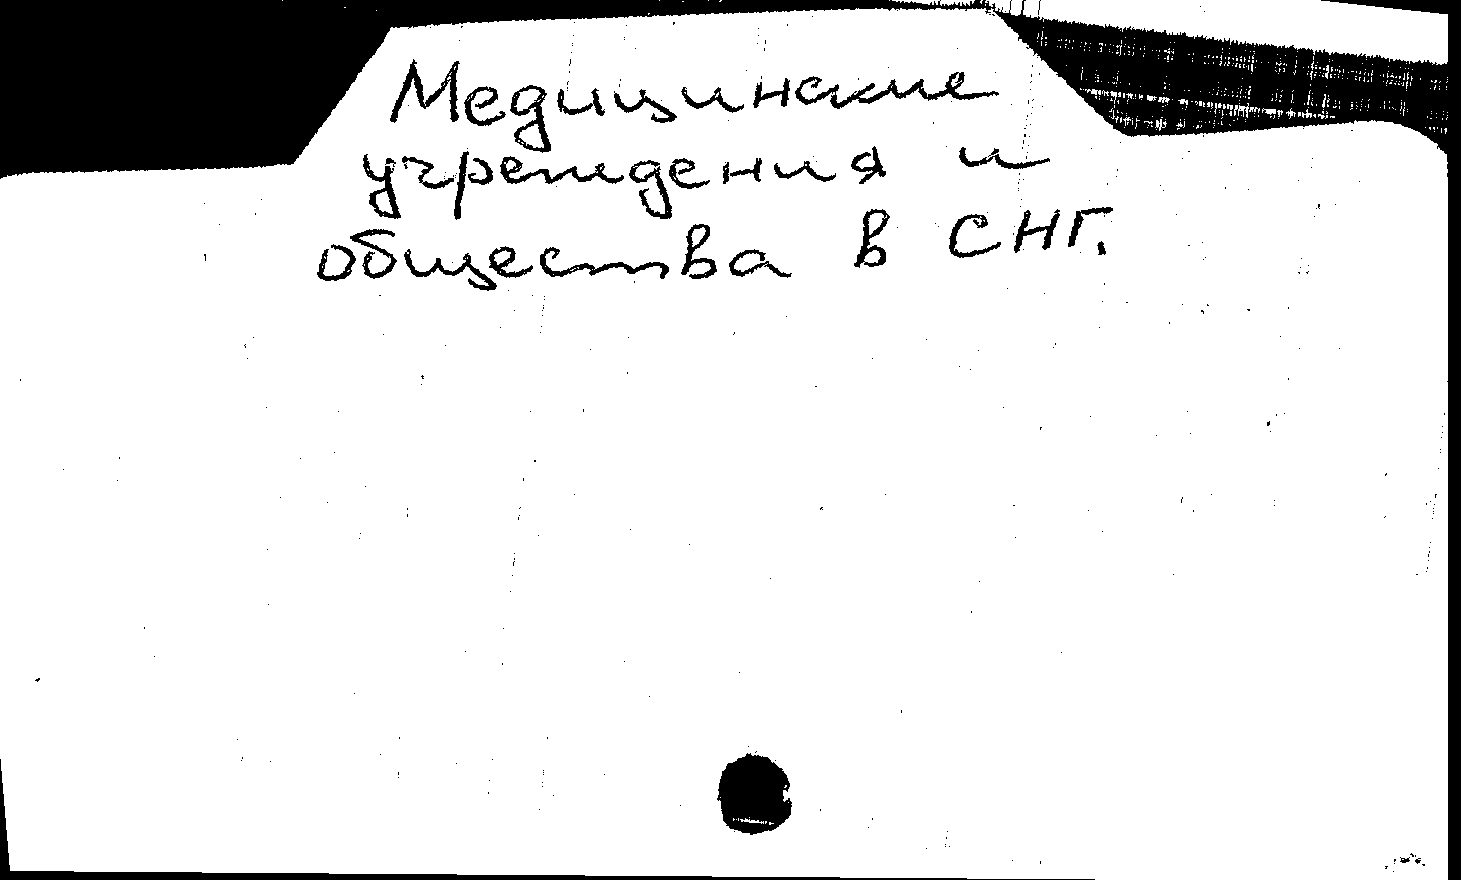 Медицинские
учреждения и
общества в СНГ.